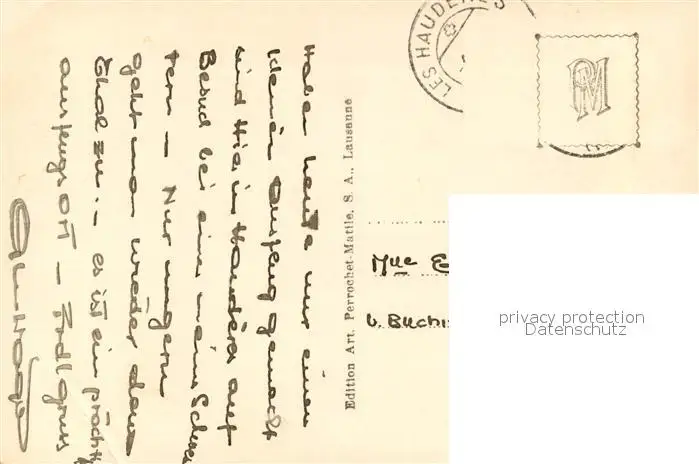 Haben heute nur einen
kleinen Ausflug gemacht
sind hie in Haudères auf
Besuch bei einer meine Schwes
tern – Nur ungern
geht man wieder dem
Thal zu. – es ist ein prächt
ausflugsort –
LES HAUDERES
PM
Edition Art. Perrochet-Matile, S. A., Lausanne
Mlle E
privacy protection
Datenschutz